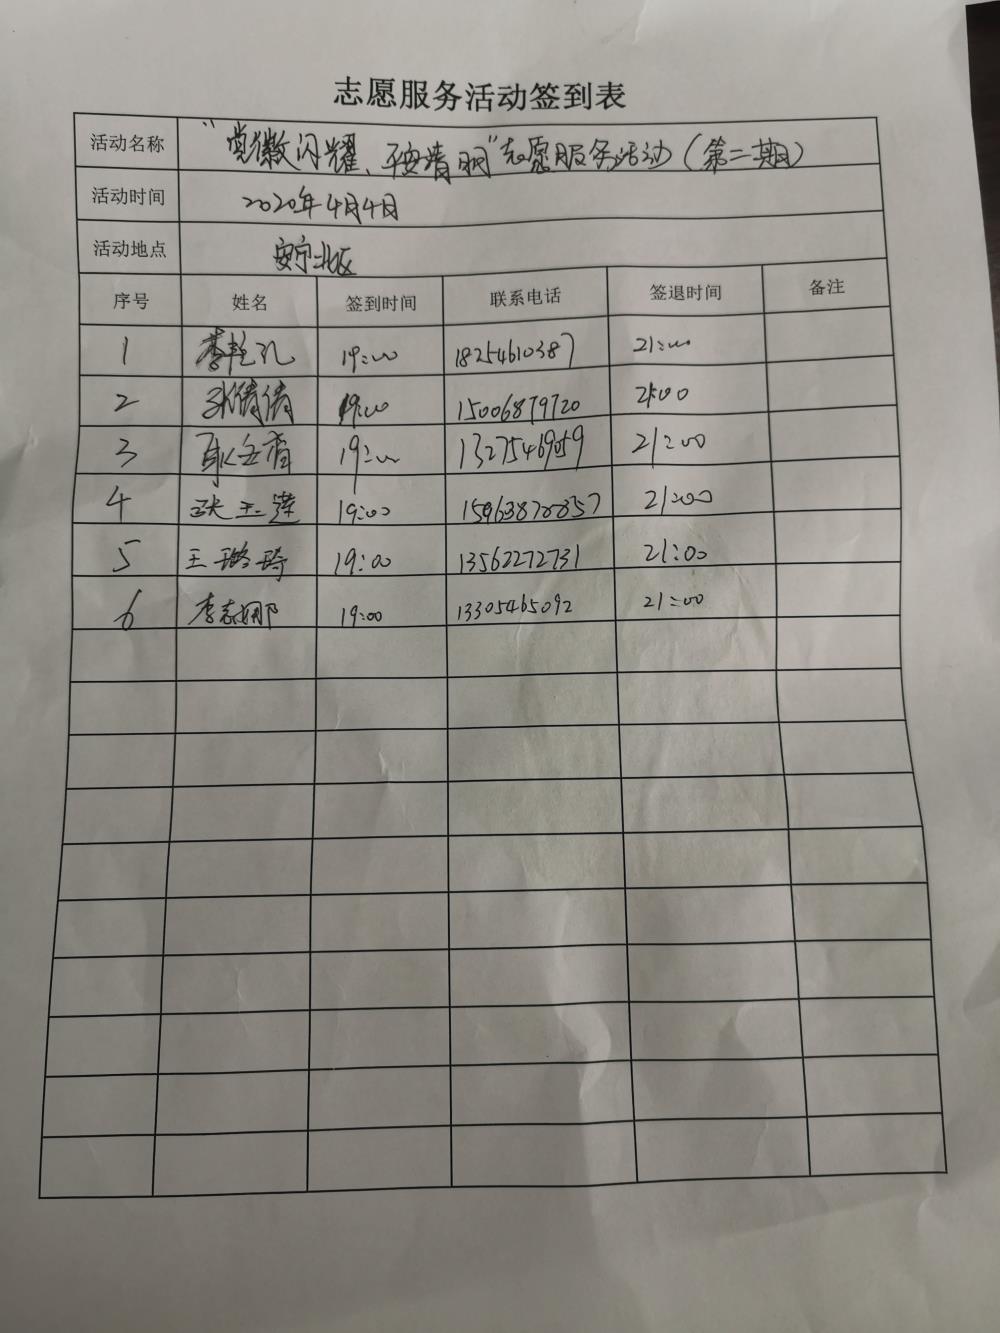 志愿服务活动签到表
活动名称 "党徽闪耀、平安清明"志愿服务活动(第二期)
活动时间 2020年4月4日
活动地点 安宁北区
序号 姓名 签到时间 联系电话 签退时间 备注
1 19:00 18254610387 21:00
2 张倩倩 19:00 15006879720 21:00
3 19:00 13275469059 21:00
4 19:00 21:00
5 王璐琦 19:00 13562272731 21:00
6 李志娜 19:00 13305465092 21:00